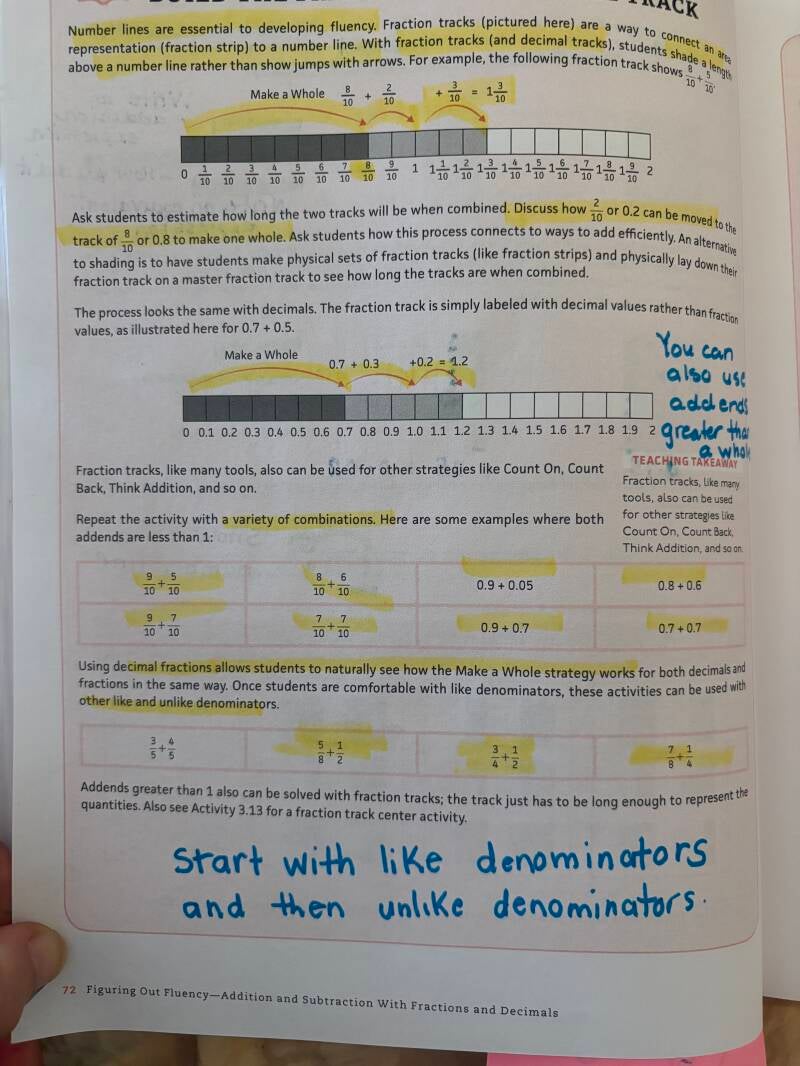 TRACK
Number lines are essential to developing fluency. Fraction tracks (pictured here) are a way to connect an area
representation (fraction strip) to a number line. With fraction tracks (and decimal tracks), students shade a length
above a number line rather than show jumps with arrows. For example, the following fraction track shows 8/10 + 5/10.
Make a Whole 8/10 + 2/10 + 3/10 = 1 3/10
0 1/10 2/10 3/10 4/10 5/10 6/10 7/10 8/10 9/10 1 1 1/10 1 2/10 1 3/10 1 4/10 1 5/10 1 6/10 1 7/10 1 8/10 1 9/10 2
Ask students to estimate how long the two tracks will be when combined. Discuss how 2/10 or 0.2 can be moved to the
track of 8/10 or 0.8 to make one whole. Ask students how this process connects to ways to add efficiently. An alternative
to shading is to have students make physical sets of fraction tracks (like fraction strips) and physically lay down their
fraction track on a master fraction track to see how long the tracks are when combined.
The process looks the same with decimals. The fraction track is simply labeled with decimal values rather than fraction
values, as illustrated here for 0.7 + 0.5.
Make a Whole 0.7 + 0.3 +0.2 = 1.2
0 0.1 0.2 0.3 0.4 0.5 0.6 0.7 0.8 0.9 1.0 1.1 1.2 1.3 1.4 1.5 1.6 1.7 1.8 1.9 2
You can
also use
addends
greater than
a whole
Fraction tracks, like many tools, also can be used for other strategies like Count On, Count
Back, Think Addition, and so on.
Repeat the activity with a variety of combinations. Here are some examples where both
addends are less than 1:
TEACHING TAKEAWAY
Fraction tracks, like many
tools, also can be used
for other strategies like
Count On, Count Back,
Think Addition, and so on.
9/10 + 5/10 8/10 + 6/10 0.9 + 0.05 0.8 + 0.6
9/10 + 7/10 7/10 + 7/10 0.9 + 0.7 0.7 + 0.7
Using decimal fractions allows students to naturally see how the Make a Whole strategy works for both decimals and
fractions in the same way. Once students are comfortable with like denominators, these activities can be used with
other like and unlike denominators.
3/5 + 4/5 5/8 + 1/2 3/4 + 1/2 7/8 + 1/4
Addends greater than 1 also can be solved with fraction tracks; the track just has to be long enough to represent the
quantities. Also see Activity 3.13 for a fraction track center activity.
Start with like denominators
and then unlike denominators.
72 Figuring Out Fluency—Addition and Subtraction With Fractions and Decimals